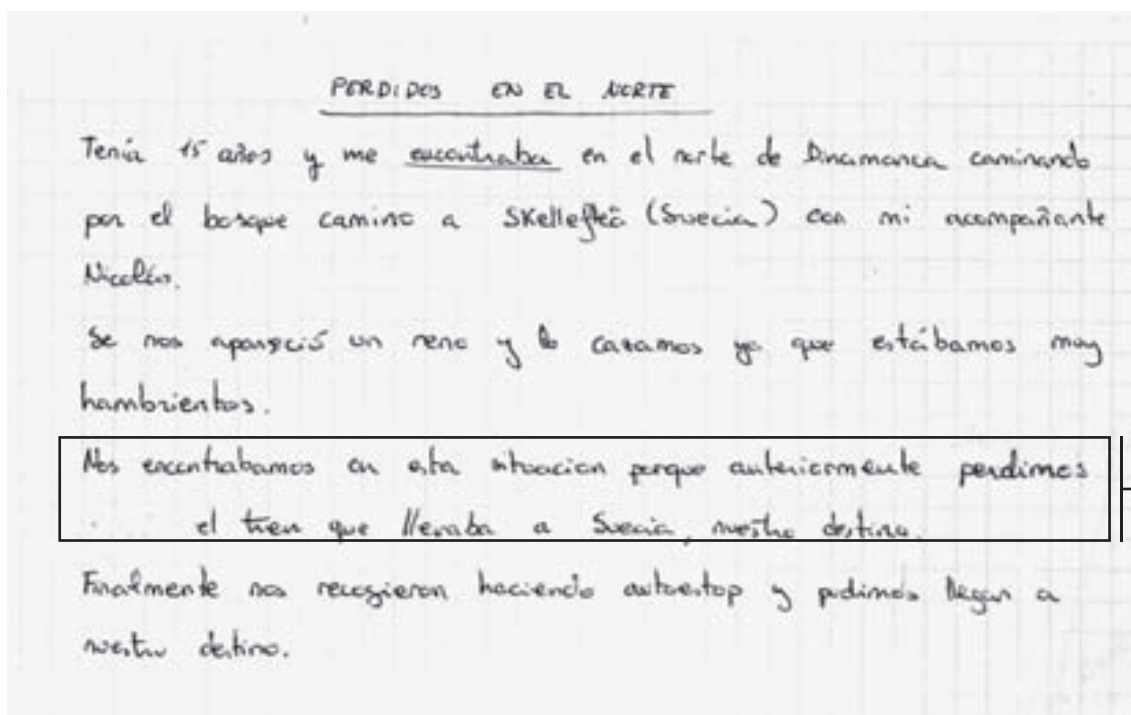 PERDIDOS EN EL NORTE
Tenía 15 años y me encontraba en el norte de Dinamarca caminando
por el bosque camino a Skellefteå (Suecia) con mi acompañante
Nicolás.
Se nos apareció un reno y lo cazamos ya que estábamos muy
hambrientos.
Nos encontrabamos en esta situacion porque anteriormente perdimos
el tren que llevaba a Suecia, nuestro destino.
Finalmente nos recogieron haciendo autoestop y pudimos llegar a
nuestro destino.